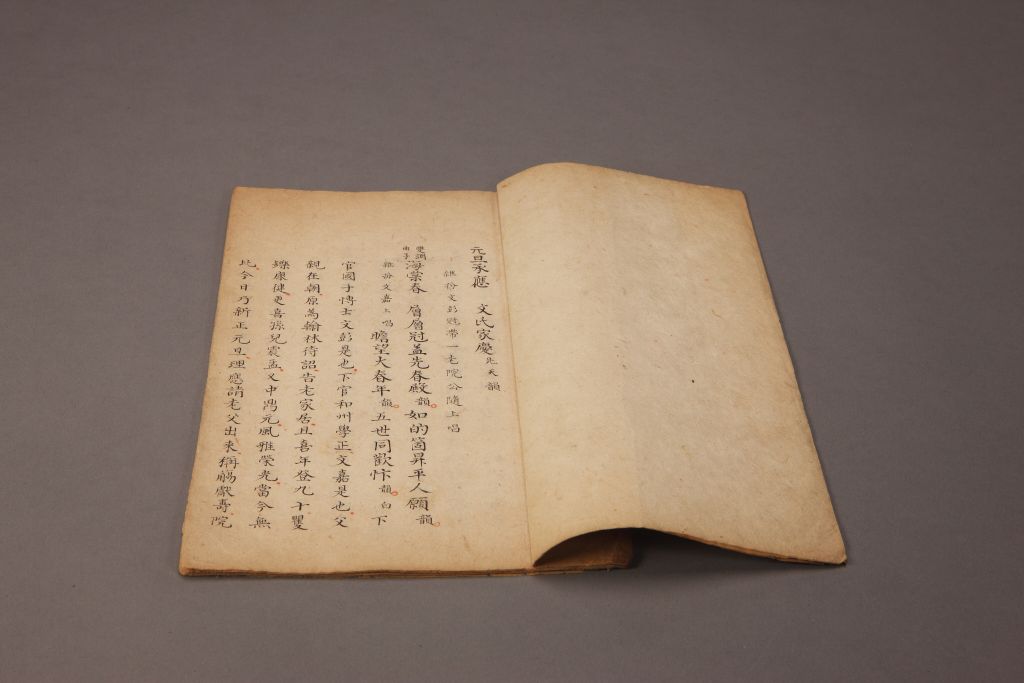 元旦承應
文氏家慶 先天韻
雜扮文彭冠帶一老院公隨上唱
雙調 由事 海棠春 層層冠蓋先春殿韻如的箇昇平人願韻
雜扮文嘉上唱 瞻望大春年韻五世同歡忭韻白下
官國子博士文彭是也下官和州學正文嘉是也父
親在朝原為翰林待詔告老家居且喜年登九十矍
鑠康健更喜孫兒震孟又中鼎元風雅榮光當今無
比今日乃新正元旦理應請老父出來稱觴獻壽院